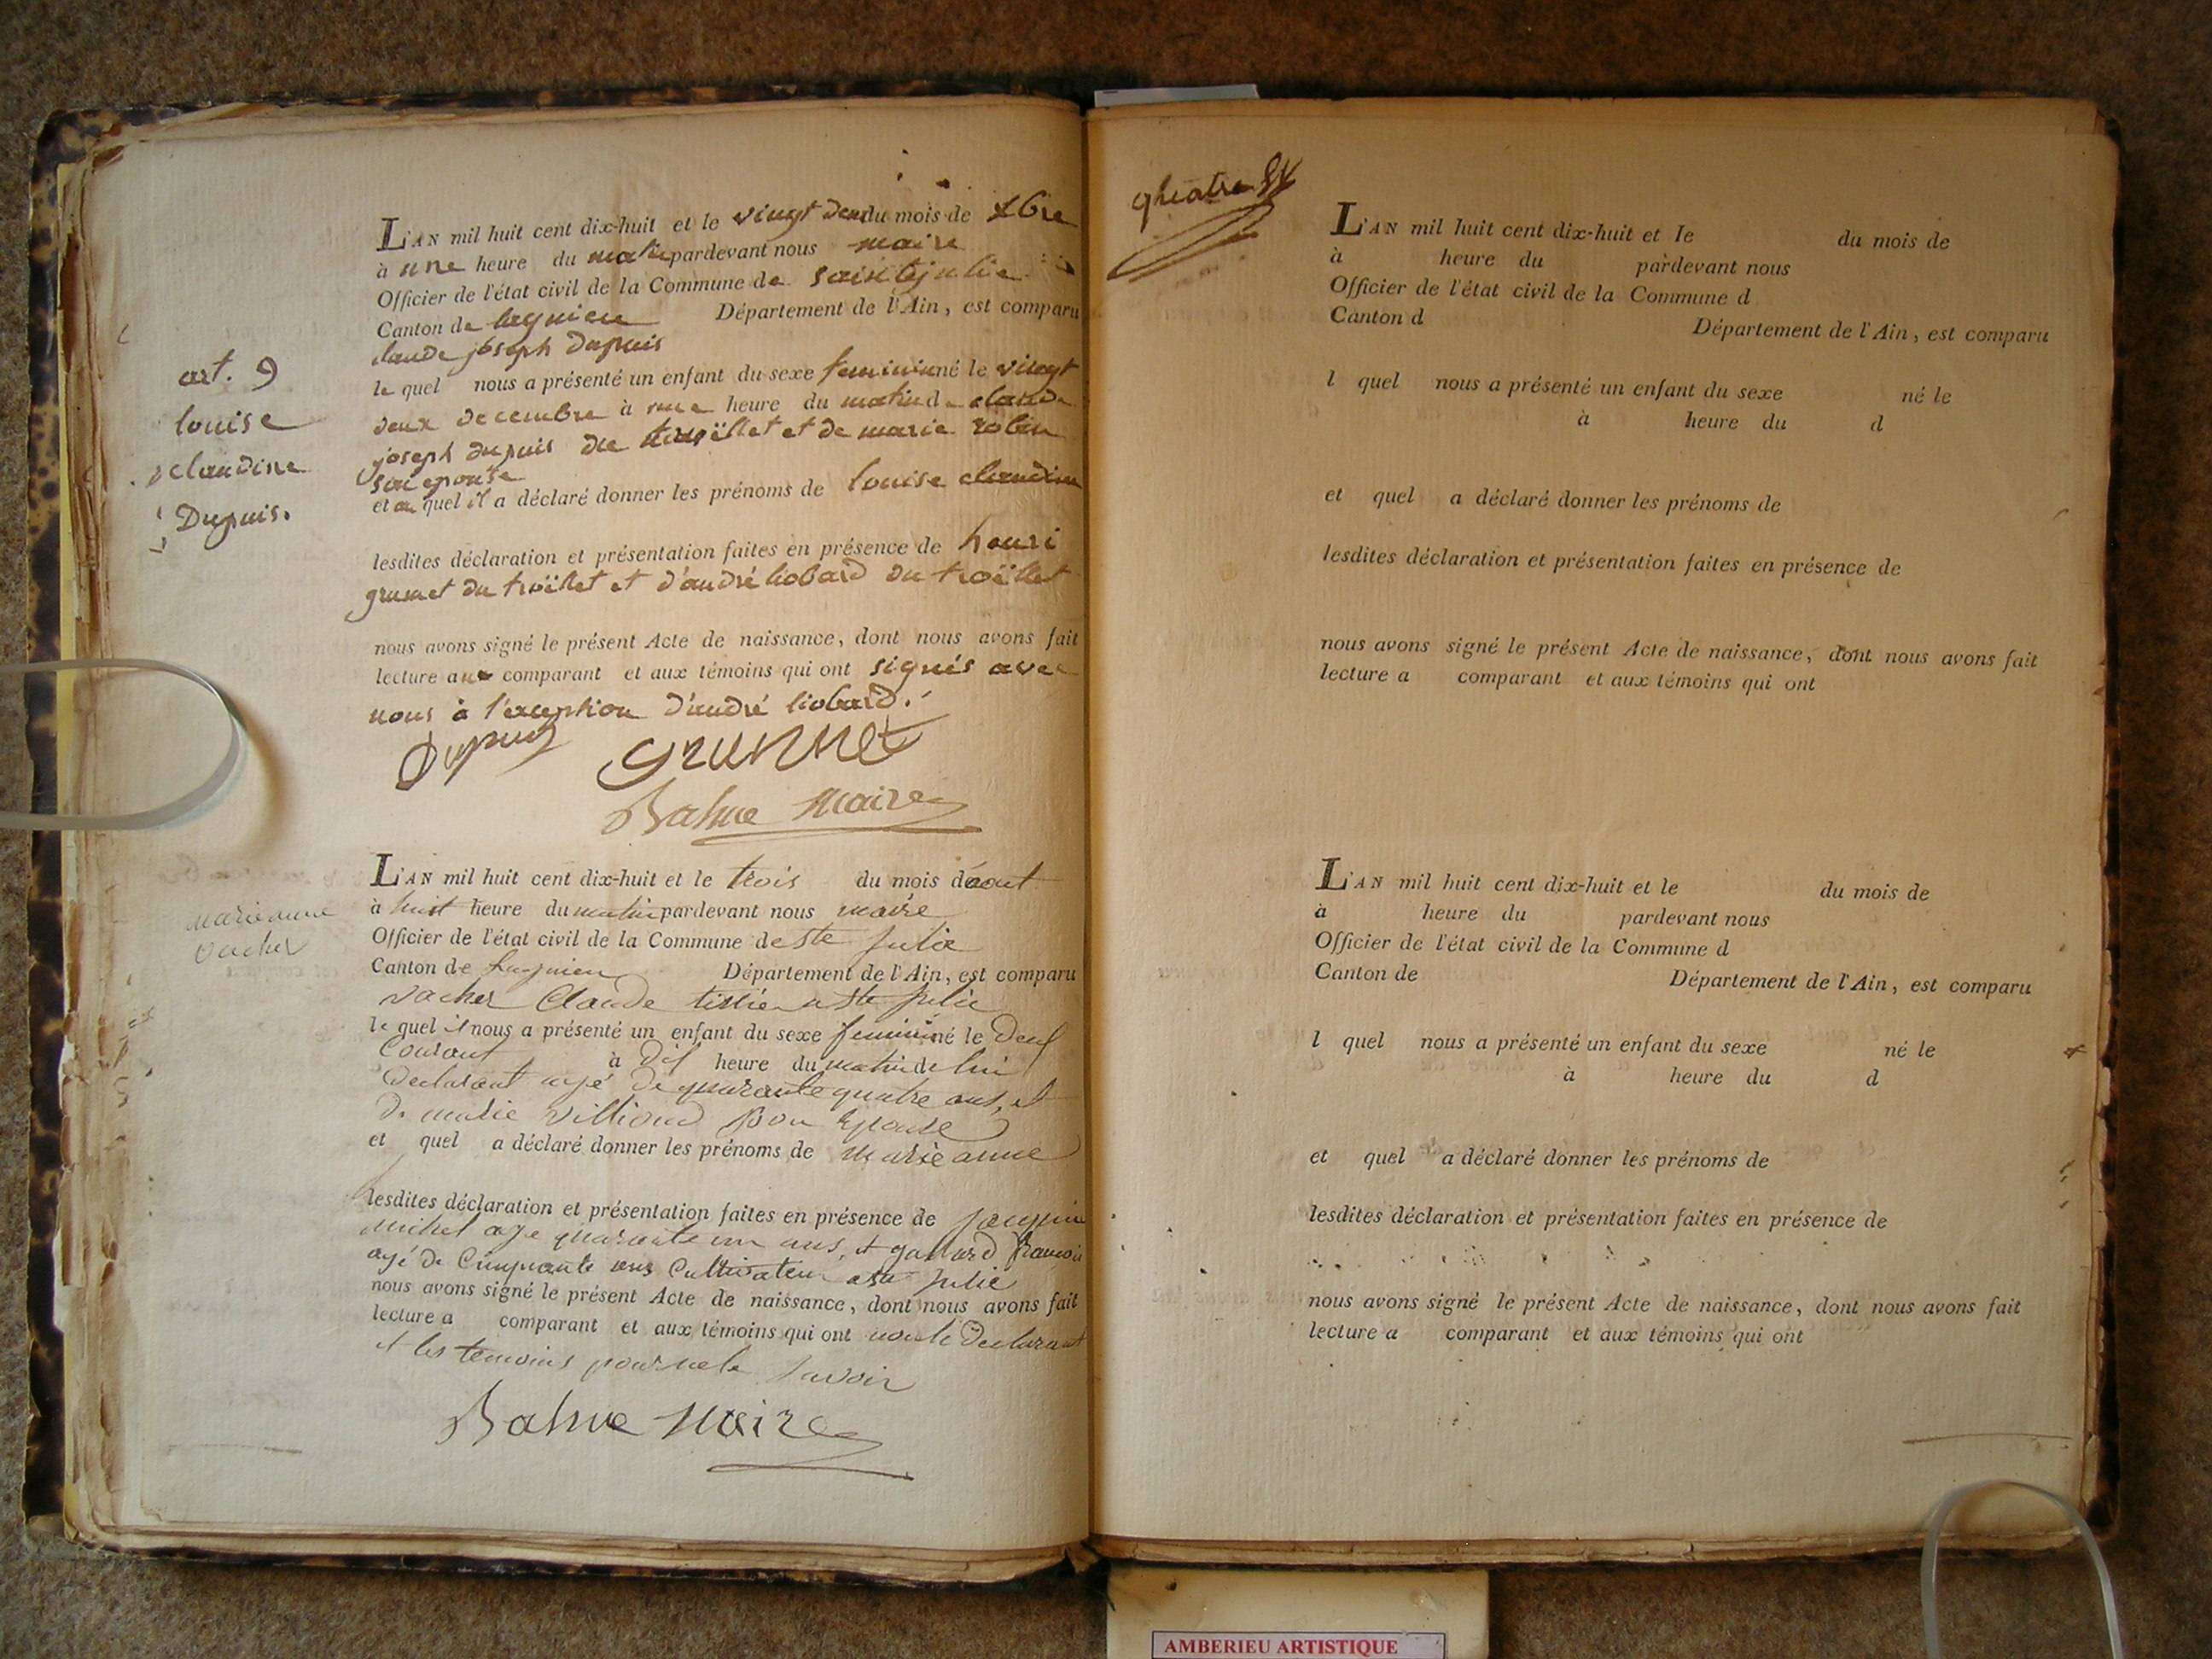 art. 9
louise
claudine
Dupuis.
L'AN mil huit cent dix-huit et le vingt deux du mois de xbre
à une heure du matin pardevant nous maire
Officier de l'état civil de la Commune de sainte julie
Canton de lagnieu Département de l'Ain, est comparu
claude joseph dupuis
le quel nous a présenté un enfant du sexe feminin né le vingt
deux decembre à une heure du matin de claude
joseph dupuis du troëllet et de marie robin
son epouse
et au quel il a déclaré donner les prénoms de louise claudine
lesdites déclaration et présentation faites en présence de henri
grumet du troëllet et d'andré liobard du troëllet
nous avons signé le présent Acte de naissance, dont nous avons fait
lecture aux comparant et aux témoins qui ont signés avec
nous à l'exception d'andré liobard.
Dupuis Grumet
Balme Maire
marieanne
vacher
L'AN mil huit cent dix-huit et le trois du mois daout
à huit heure du matin pardevant nous maire
Officier de l'état civil de la Commune de ste julie
Canton de Lagnieu Département de l'Ain, est comparu
vacher Claude a ste julie
le quel il nous a présenté un enfant du sexe feminin né le deux
Courant à dix heure du matin de lui
declarant agé de quarante quatre ans, et
de marie son Epouse
et quel a déclaré donner les prénoms de marie anne
lesdites déclaration et présentation faites en présence de
michel age quarante un ans, et francois
agé de Cinquante ans Cultivateur a ste julie
nous avons signé le présent Acte de naissance, dont nous avons fait
lecture a comparant et aux témoins qui ont non le declarant
et les temoins pour ne le savoir
Balme Maire
L'AN mil huit cent dix-huit et le du mois de
à heure du pardevant nous
Officier de l'état civil de la Commune d
Canton d Département de l'Ain, est comparu
l quel nous a présenté un enfant du sexe né le
à heure du d
et quel a déclaré donner les prénoms de
lesdites déclaration et présentation faites en présence de
nous avons signé le présent Acte de naissance, dont nous avons fait
lecture a comparant et aux témoins qui ont
L'AN mil huit cent dix-huit et le du mois de
à heure du pardevant nous
Officier de l'état civil de la Commune d
Canton de Département de l'Ain, est comparu
l quel nous a présenté un enfant du sexe né le
à heure du d
et quel a déclaré donner les prénoms de
lesdites déclaration et présentation faites en présence de
nous avons signé le présent Acte de naissance, dont nous avons fait
lecture a comparant et aux témoins qui ont
AMBERIEU ARTISTIQUE